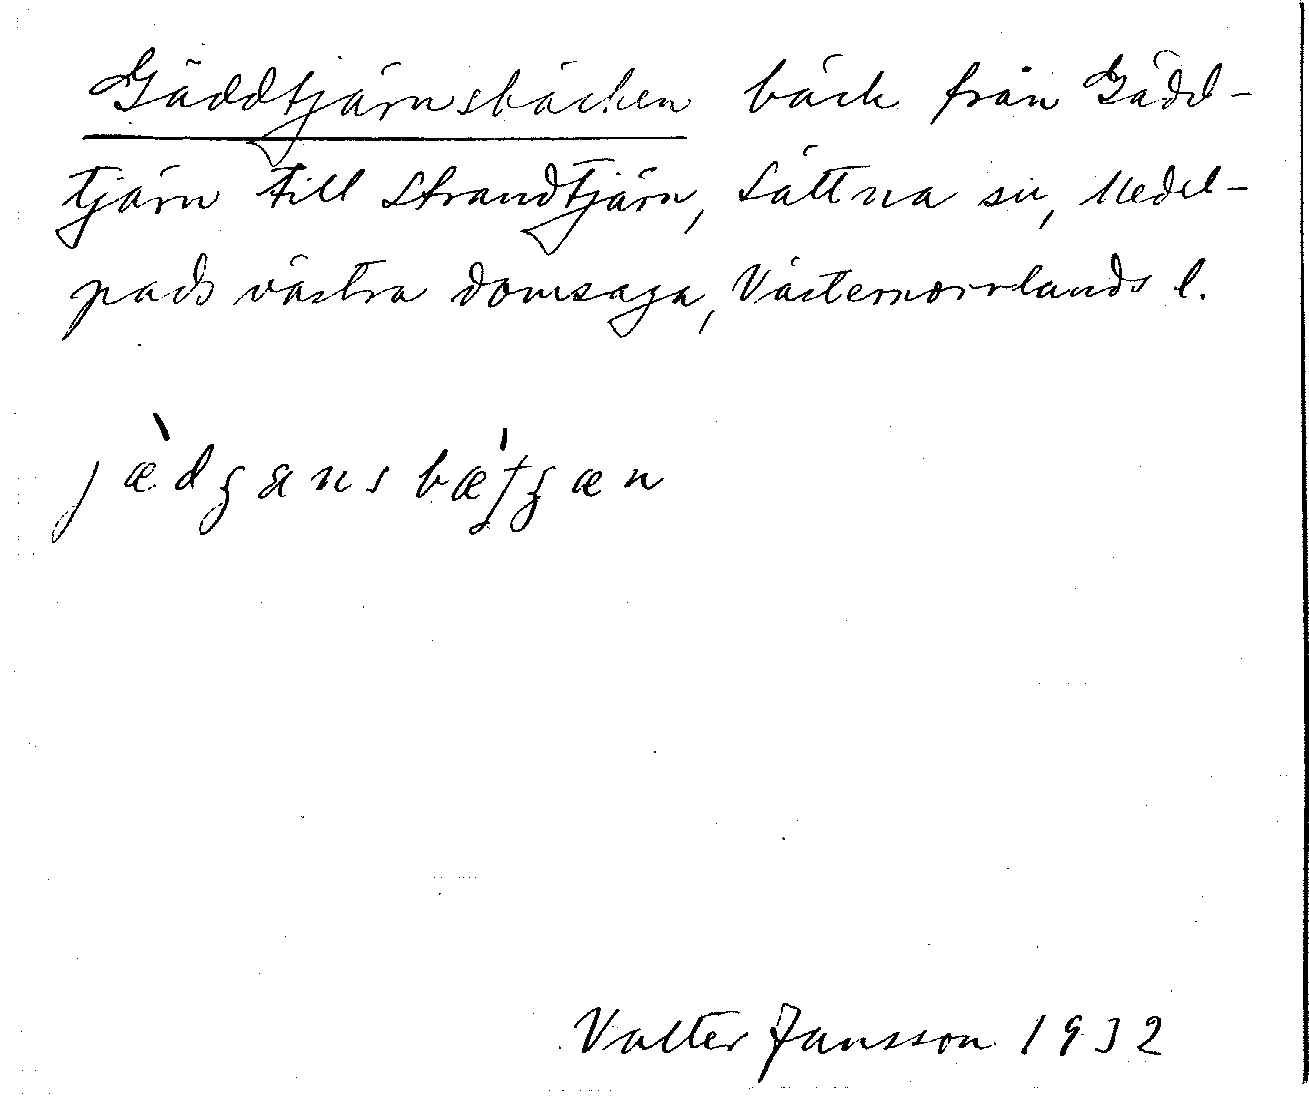 Gäddtjärnsbäcken bäck från Gädd-
tjärn till Strandtjärn, Sättna sn, Medel-
pads västra domsaga, Västernorrlands l.
Valter Jansson 1932